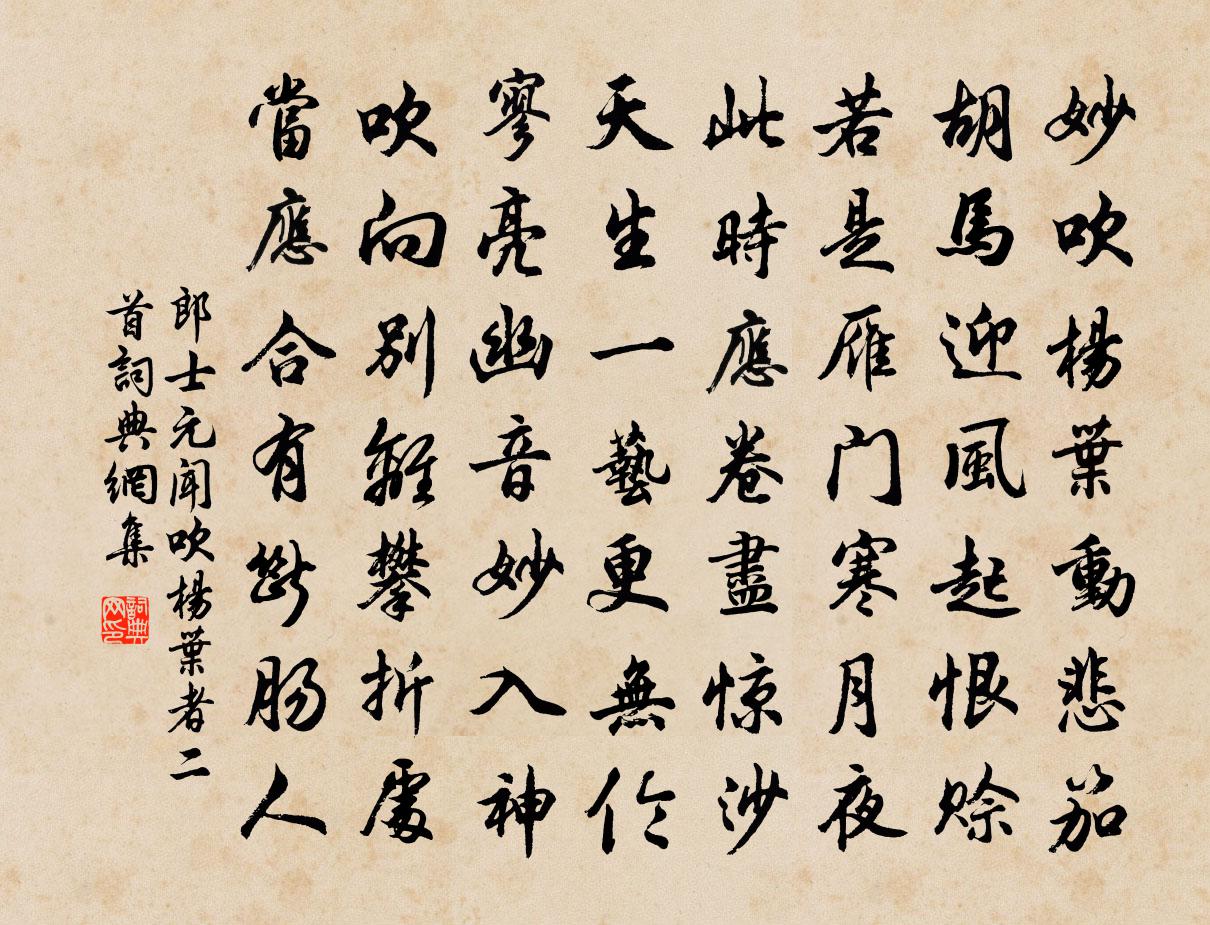 妙吹楊葉動悲笳
胡馬迎風起恨賒
若是雁门寒月夜
此時應卷盡惊沙
天生一藝更無伦
寥亮幽音妙入神
吹向別離攀折處
當應合有斷腸人
郎士元聞吹楊葉者二
首詞典網集
詞典
网印